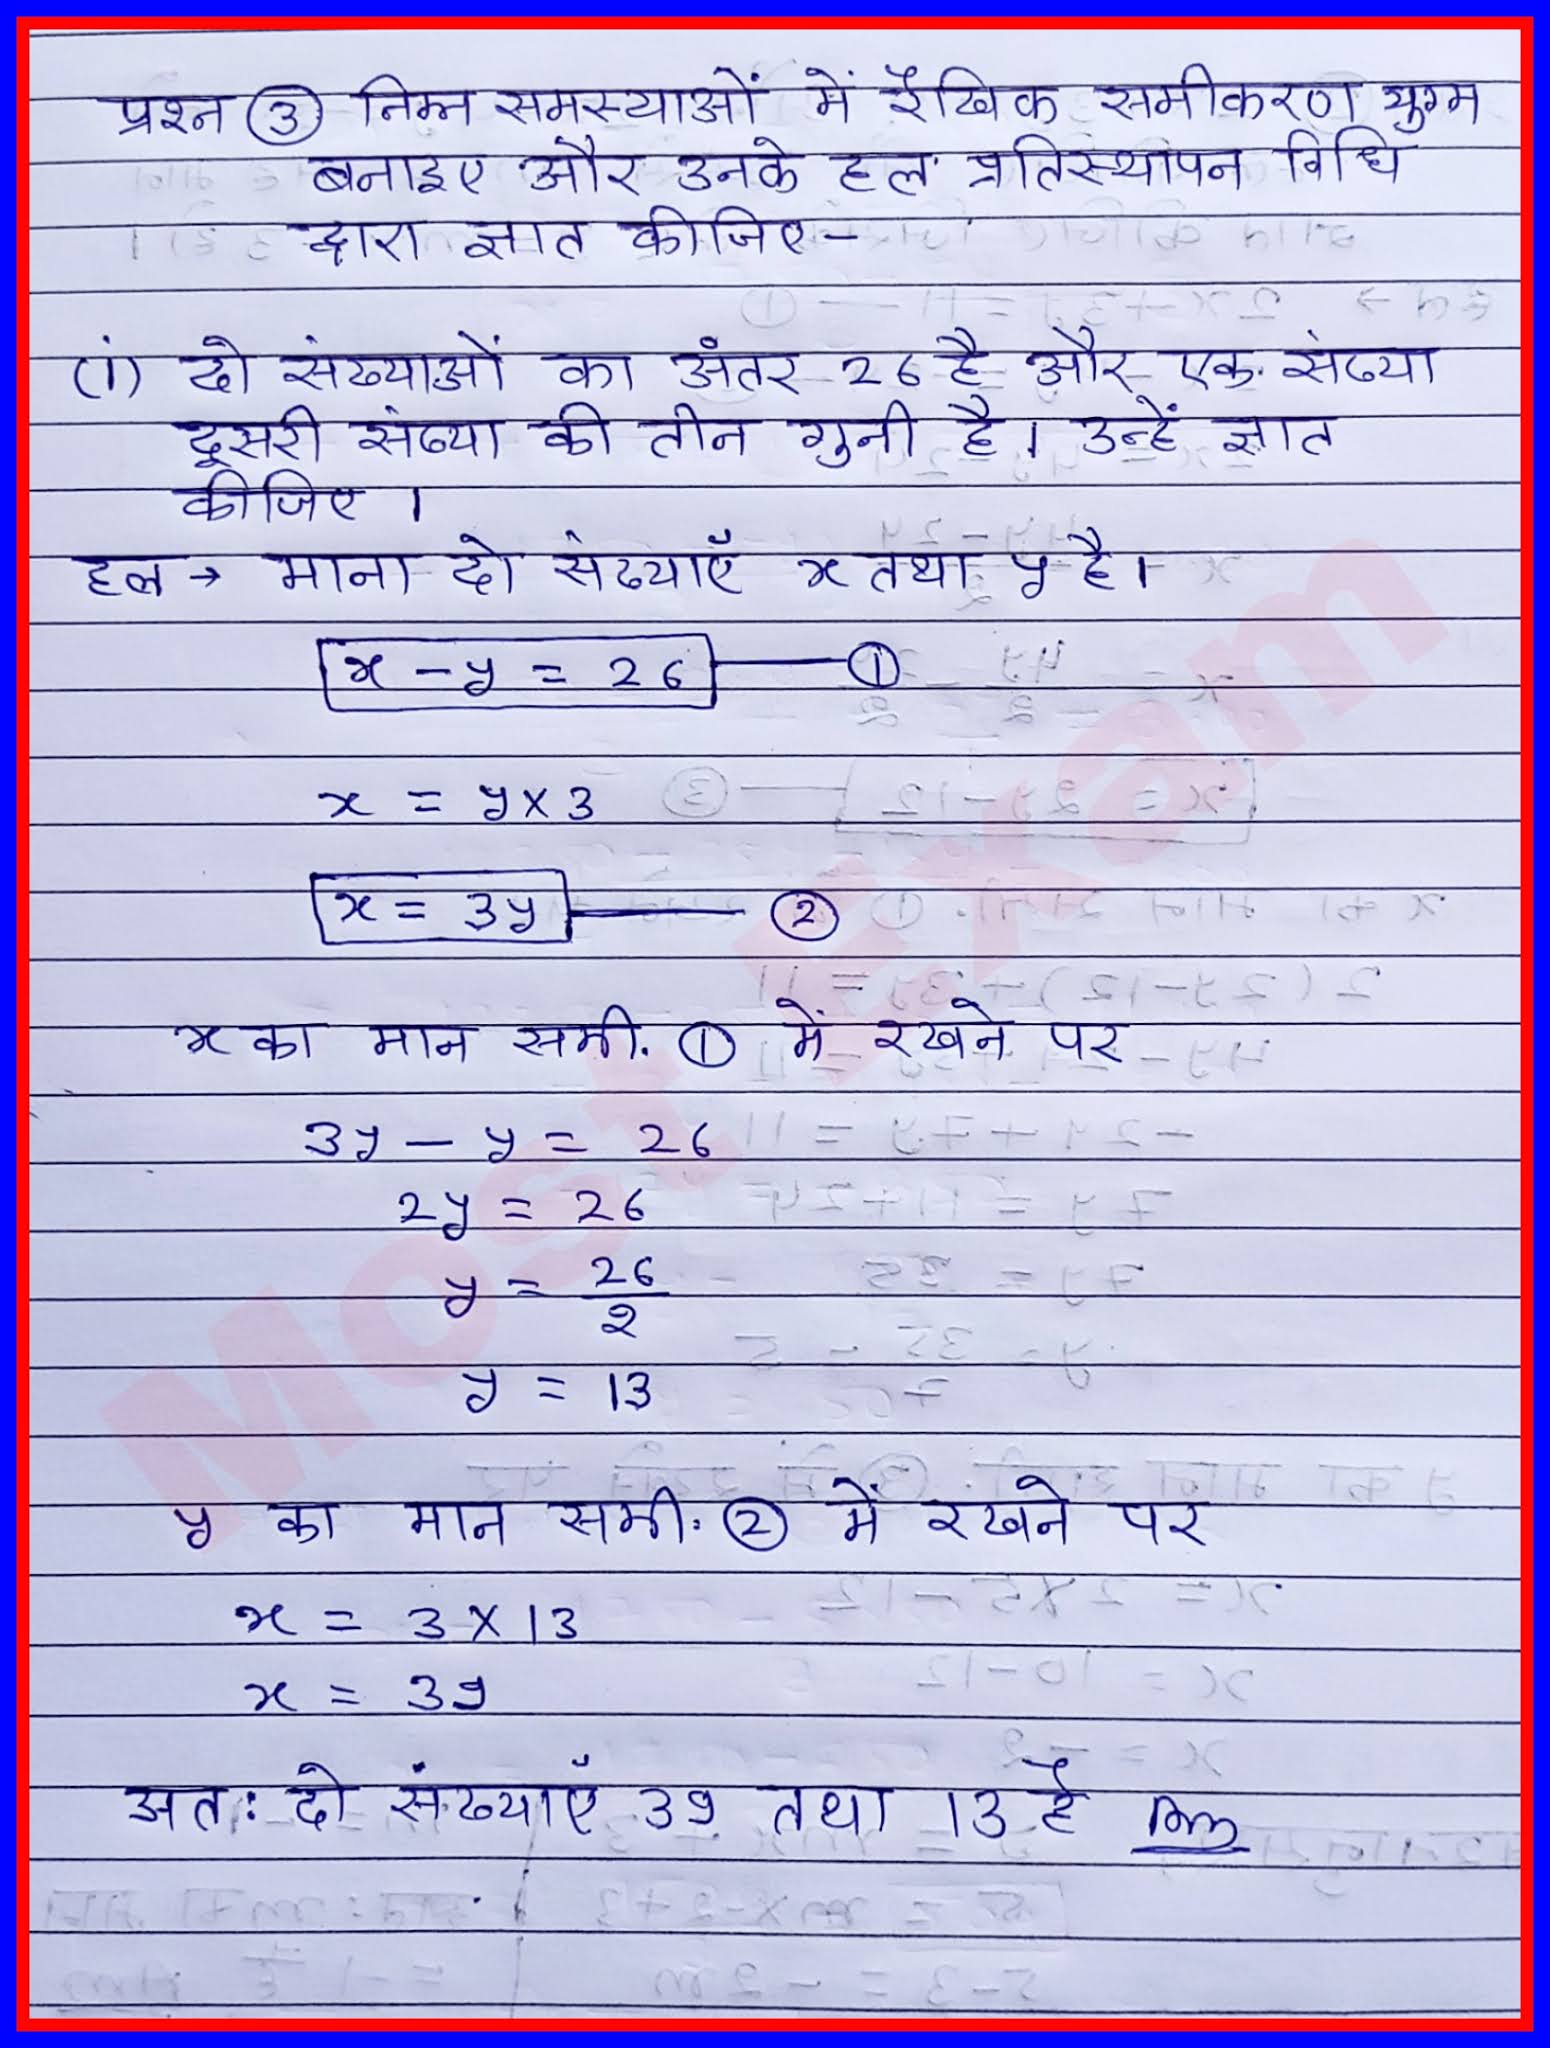 प्रश्न ③ निम्न समस्याओं में रैखिक समीकरण युग्म
बनाइए और उनके हल प्रतिस्थापन विधि
द्वारा ज्ञात कीजिए-
(i) दो संख्याओं का अंतर 26 है और एक संख्या
दूसरी संख्या की तीन गुनी है। उन्हें ज्ञात
कीजिए ।
हल → माना दो संख्याएँ x तथा y है।
x - y = 26 — ①
x = y × 3
x = 3y — ②
x का मान समी. ① में रखने पर
3y - y = 26
2y = 26
y = 26/2
y = 13
y का मान समी. ② में रखने पर
x = 3 × 13
x = 39
अतः दो संख्याएँ 39 तथा 13 है Ans
Most Exam